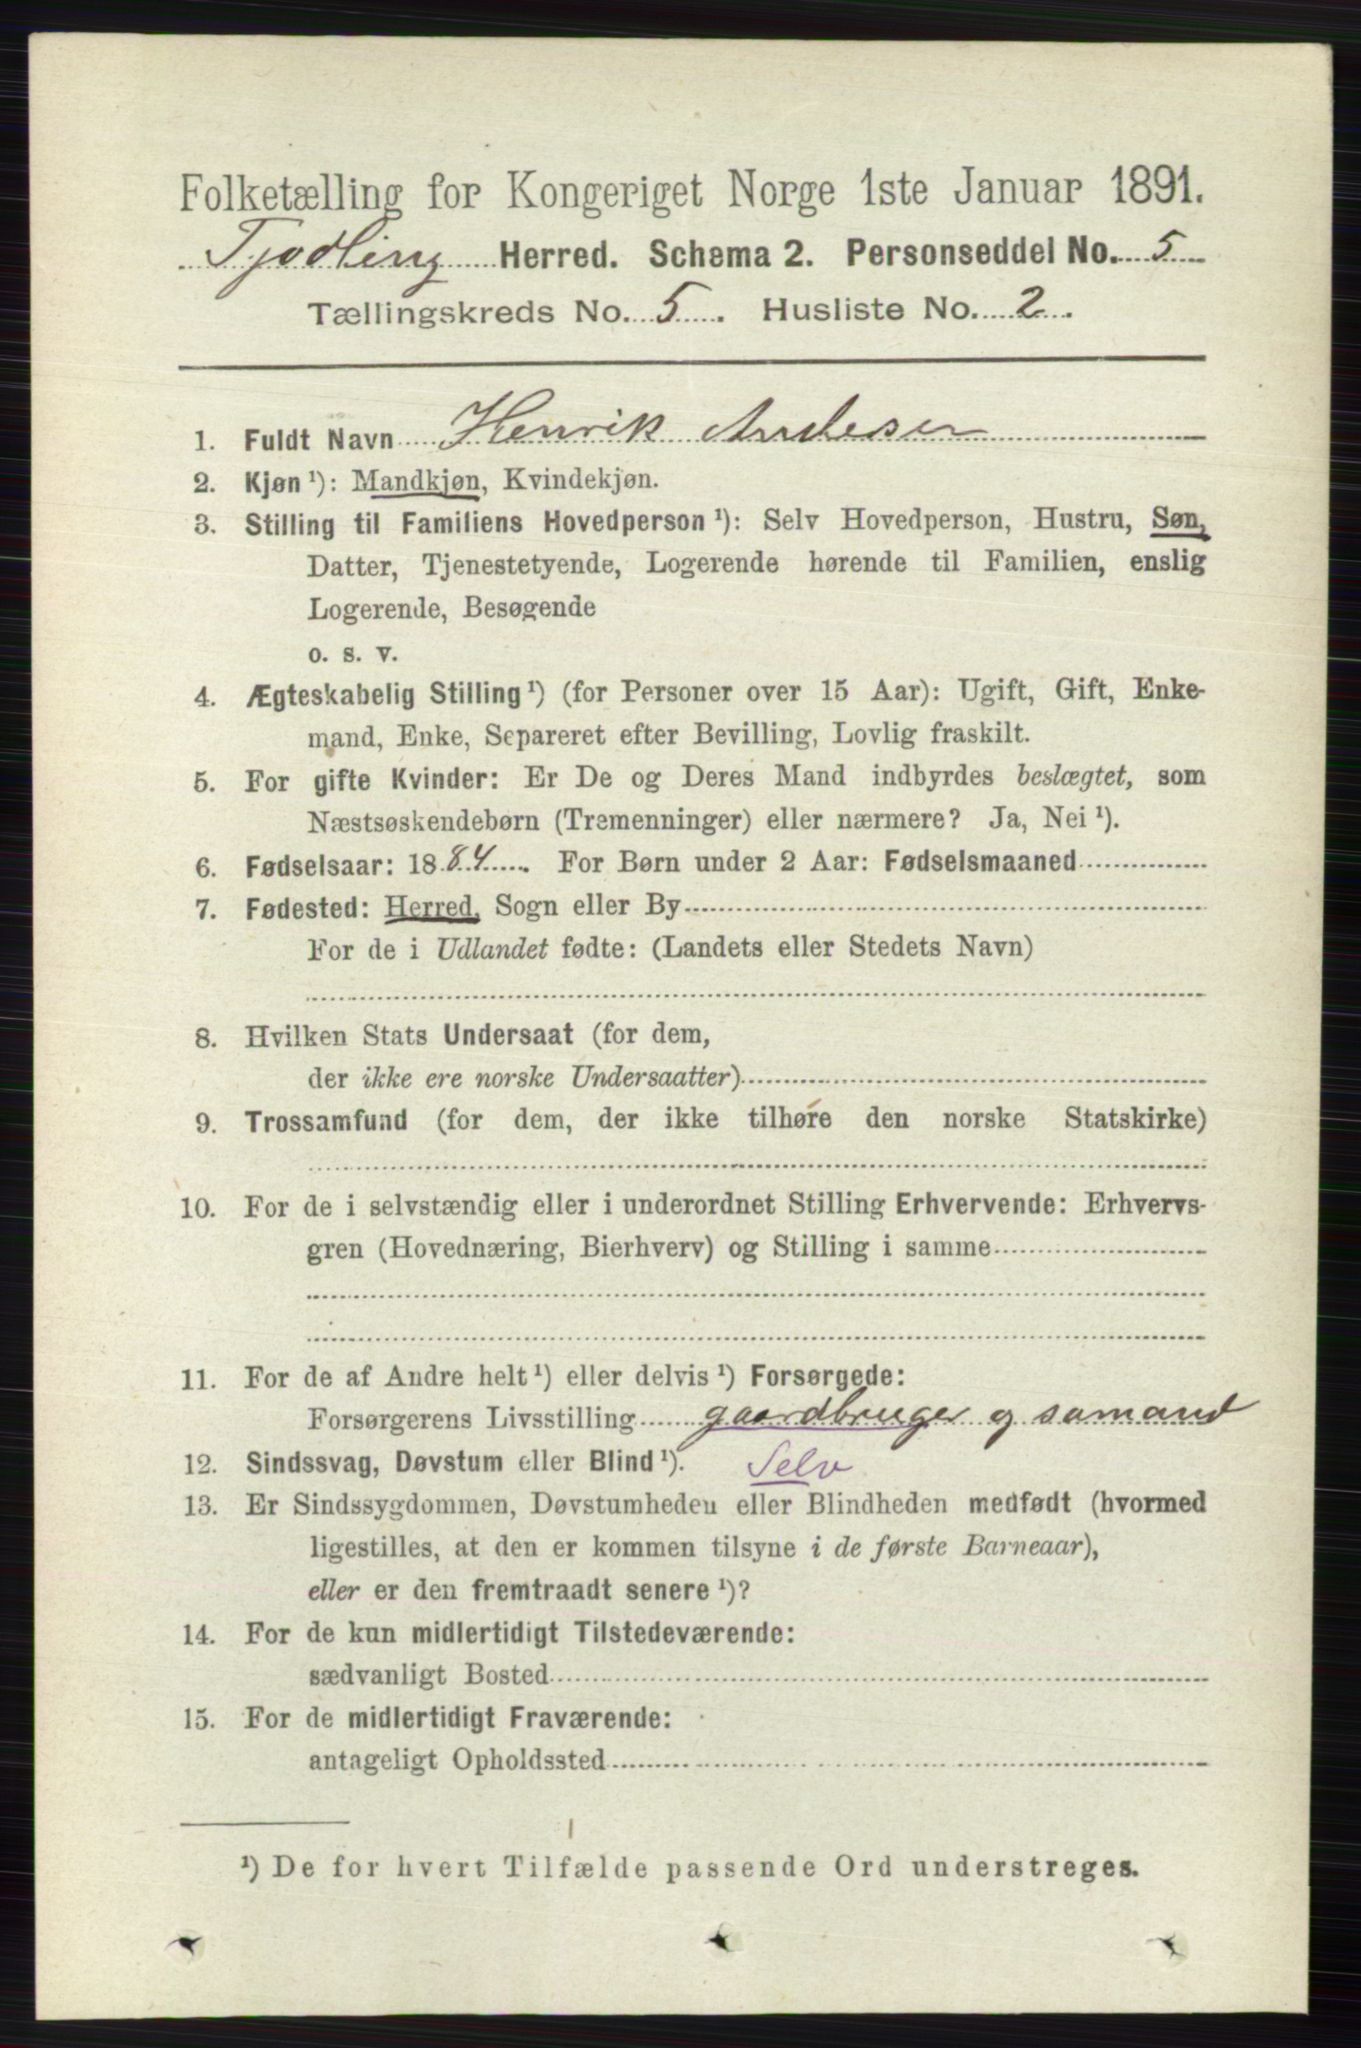 Folketælling for Kongeriget Norge 1ste Januar 1891.
Tjodling Herred. Schema 2. Personseddel No. 5
Tællingskreds No. 5. Husliste No. 2.
1. Fuldt Navn Henrik Andesen
2. Kjøn ¹): Mandkjøn, Kvindekjøn.
3. Stilling til Familiens Hovedperson ¹): Selv Hovedperson, Hustru, Søn,
Datter, Tjenestetyende, Logerende hørende til Familien, enslig
Logerende, Besøgende
o. s. v.
4. Ægteskabelig Stilling ¹) (for Personer over 15 Aar): Ugift, Gift, Enke-
mand, Enke, Separeret efter Bevilling, Lovlig fraskilt.
5. For gifte Kvinder: Er De og Deres Mand indbyrdes beslægtet, som
Næstsøskendebørn (Tremenninger) eller nærmere? Ja, Nei ¹).
6. Fødselsaar: 1884. For Børn under 2 Aar: Fødselsmaaned
7. Fødested: Herred, Sogn eller By
For de i Udlandet fødte: (Landets eller Stedets Navn)
8. Hvilken Stats Undersaat (for dem,
der ikke ere norske Undersaatter)
9. Trossamfund (for dem, der ikke tilhøre den norske Statskirke)
10. For de i selvstændig eller i underordnet Stilling Erhvervende: Erhvervs-
gren (Hovednæring, Bierhverv) og Stilling i samme
11. For de af Andre helt ¹) eller delvis ¹) Forsørgede:
Forsørgerens Livsstilling gaardbruger og somand
12. Sindssvag, Døvstum eller Blind ¹). Selv
13. Er Sindssygdommen, Døvstumheden eller Blindheden medfødt (hvormed
ligestilles, at den er kommen tilsyne i de første Barneaar),
eller er den fremtraadt senere ¹)?
14. For de kun midlertidigt Tilstedeværende:
sædvanligt Bosted
15. For de midlertidigt Fraværende:
antageligt Opholdssted
¹) De for hvert Tilfælde passende Ord understreges.